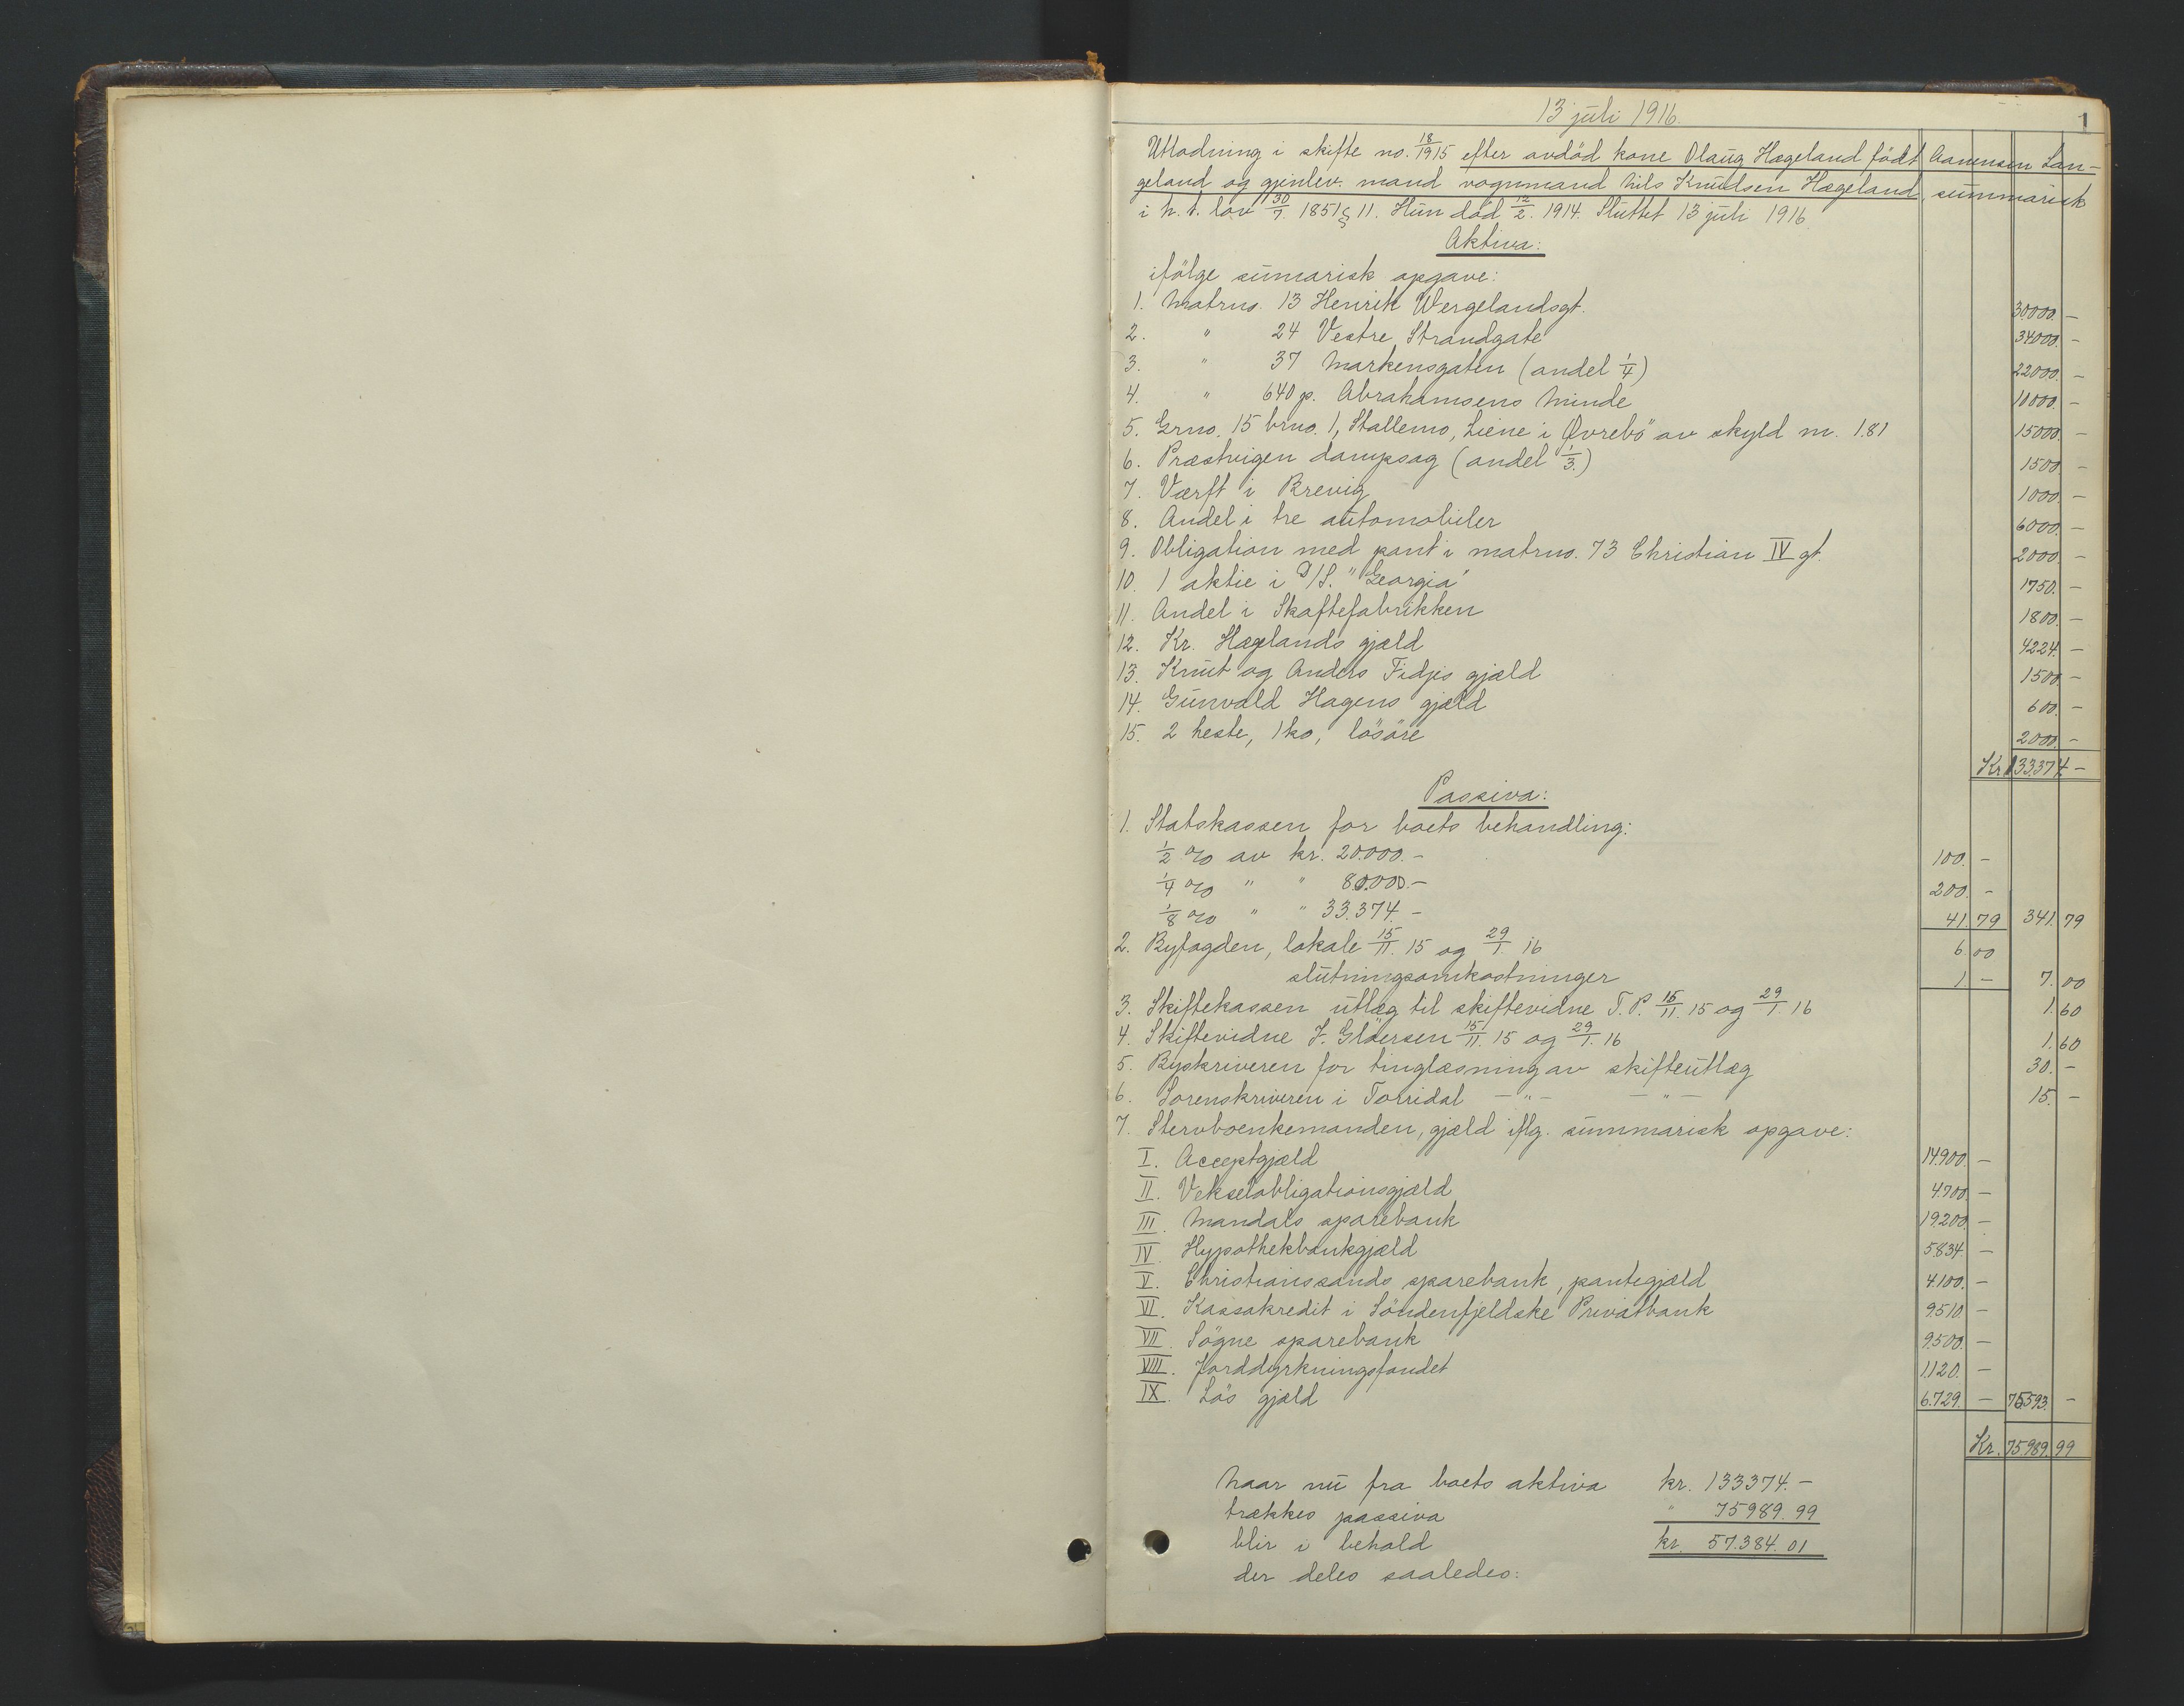 13 juli 1916.
1
Utlodning i skifte no. 18/1915 efter avdöd kone Olaug Hægeland födt Aanensen Lan-
geland og gjenlev. mand vognmand Nils Knudsen Hægeland, summarisk
i h. t. lov 30/7 1851 § 11. Hun död 12/2. 1914. Sluttet 13 juli 1916
Aktiva:
ifölge sumarisk opgave:
1. Matrno. 13 Henrik Wergelandsgt. 30000. -
2. " 24 Vestre Strandgate 34000. -
3. " 37 Markensgaten (andel 1/4) 22000. -
4. " 640 p. Abrahamsens Minde 10000. -
5. Grno. 15 brno. 1, Stallemo, Liene i Øvrebö av skyld m. 1.81 15000. -
6. Præstvigen dampsag (andel 1/3.) 1500. -
7. Værft i Brevig 1000. -
8. Andel i tre automobiler 6000. -
9. Obligation med pant i matrno. 73 Christian IV gt. 2000. -
10. 1 aktie i D/S. "Georgia" 1750. -
11. Andel i Skaftefabrikken 1800. -
12. Kr. Hægelands gjæld 4224. -
13. Knut og Anders Fidjes gjæld 1500 -
14. Gunvald Hagens gjæld 600. -
15. 2 heste, 1 ko, lösöre 2000. -
Kr. 133374 -
Passiva:
1. Statskassen for boets behandling:
1/2 % av kr. 20.000.- 100. -
1/4 % " " 80.000.- 200. -
1/8 % " " 33.374.- 41.79 341.79
2. Byfogden, lokale 15/11. 15 og 29/1. 16 6 00
slutningsomkostninger 1 - 7.00
3. Skiftekassen utlæg til skiftevidne T. P. 15/11. 15 og 29/1. 16 1.60
4. Skiftevidne J. Glöersen 15/11. 15 og 29/1. 16 1.60
5. Byskriveren for tinglæsning av skifteutlæg 30. -
6. Sorenskriveren i Torridal - " - - " - 15. -
7. Stervboenkemanden, gjæld iflg. summarisk opgave:
I. Acceptgjæld 14.900. -
II. Vekselobligationsgjæld 4.700. -
III. Mandals sparebank 19.200. -
IV. Hypothekbankgjæld 5.834. -
V. Christianssands sparebank, pantegjæld 4.100. -
VI. Kassakredit i Söndenfjeldske Privatbank 9510. -
VII. Sögne sparebank 9.500. -
VIII. Jorddyrkningsfondet 1.120. -
IX. Lös gjæld 6.729. - 75593. -
Kr. 75.989.99
Naar nu fra boets aktiva kr. 133374.-
trækkes passiva " 75989.99
blir i behold kr. 57.384.01
der deles saaledes: